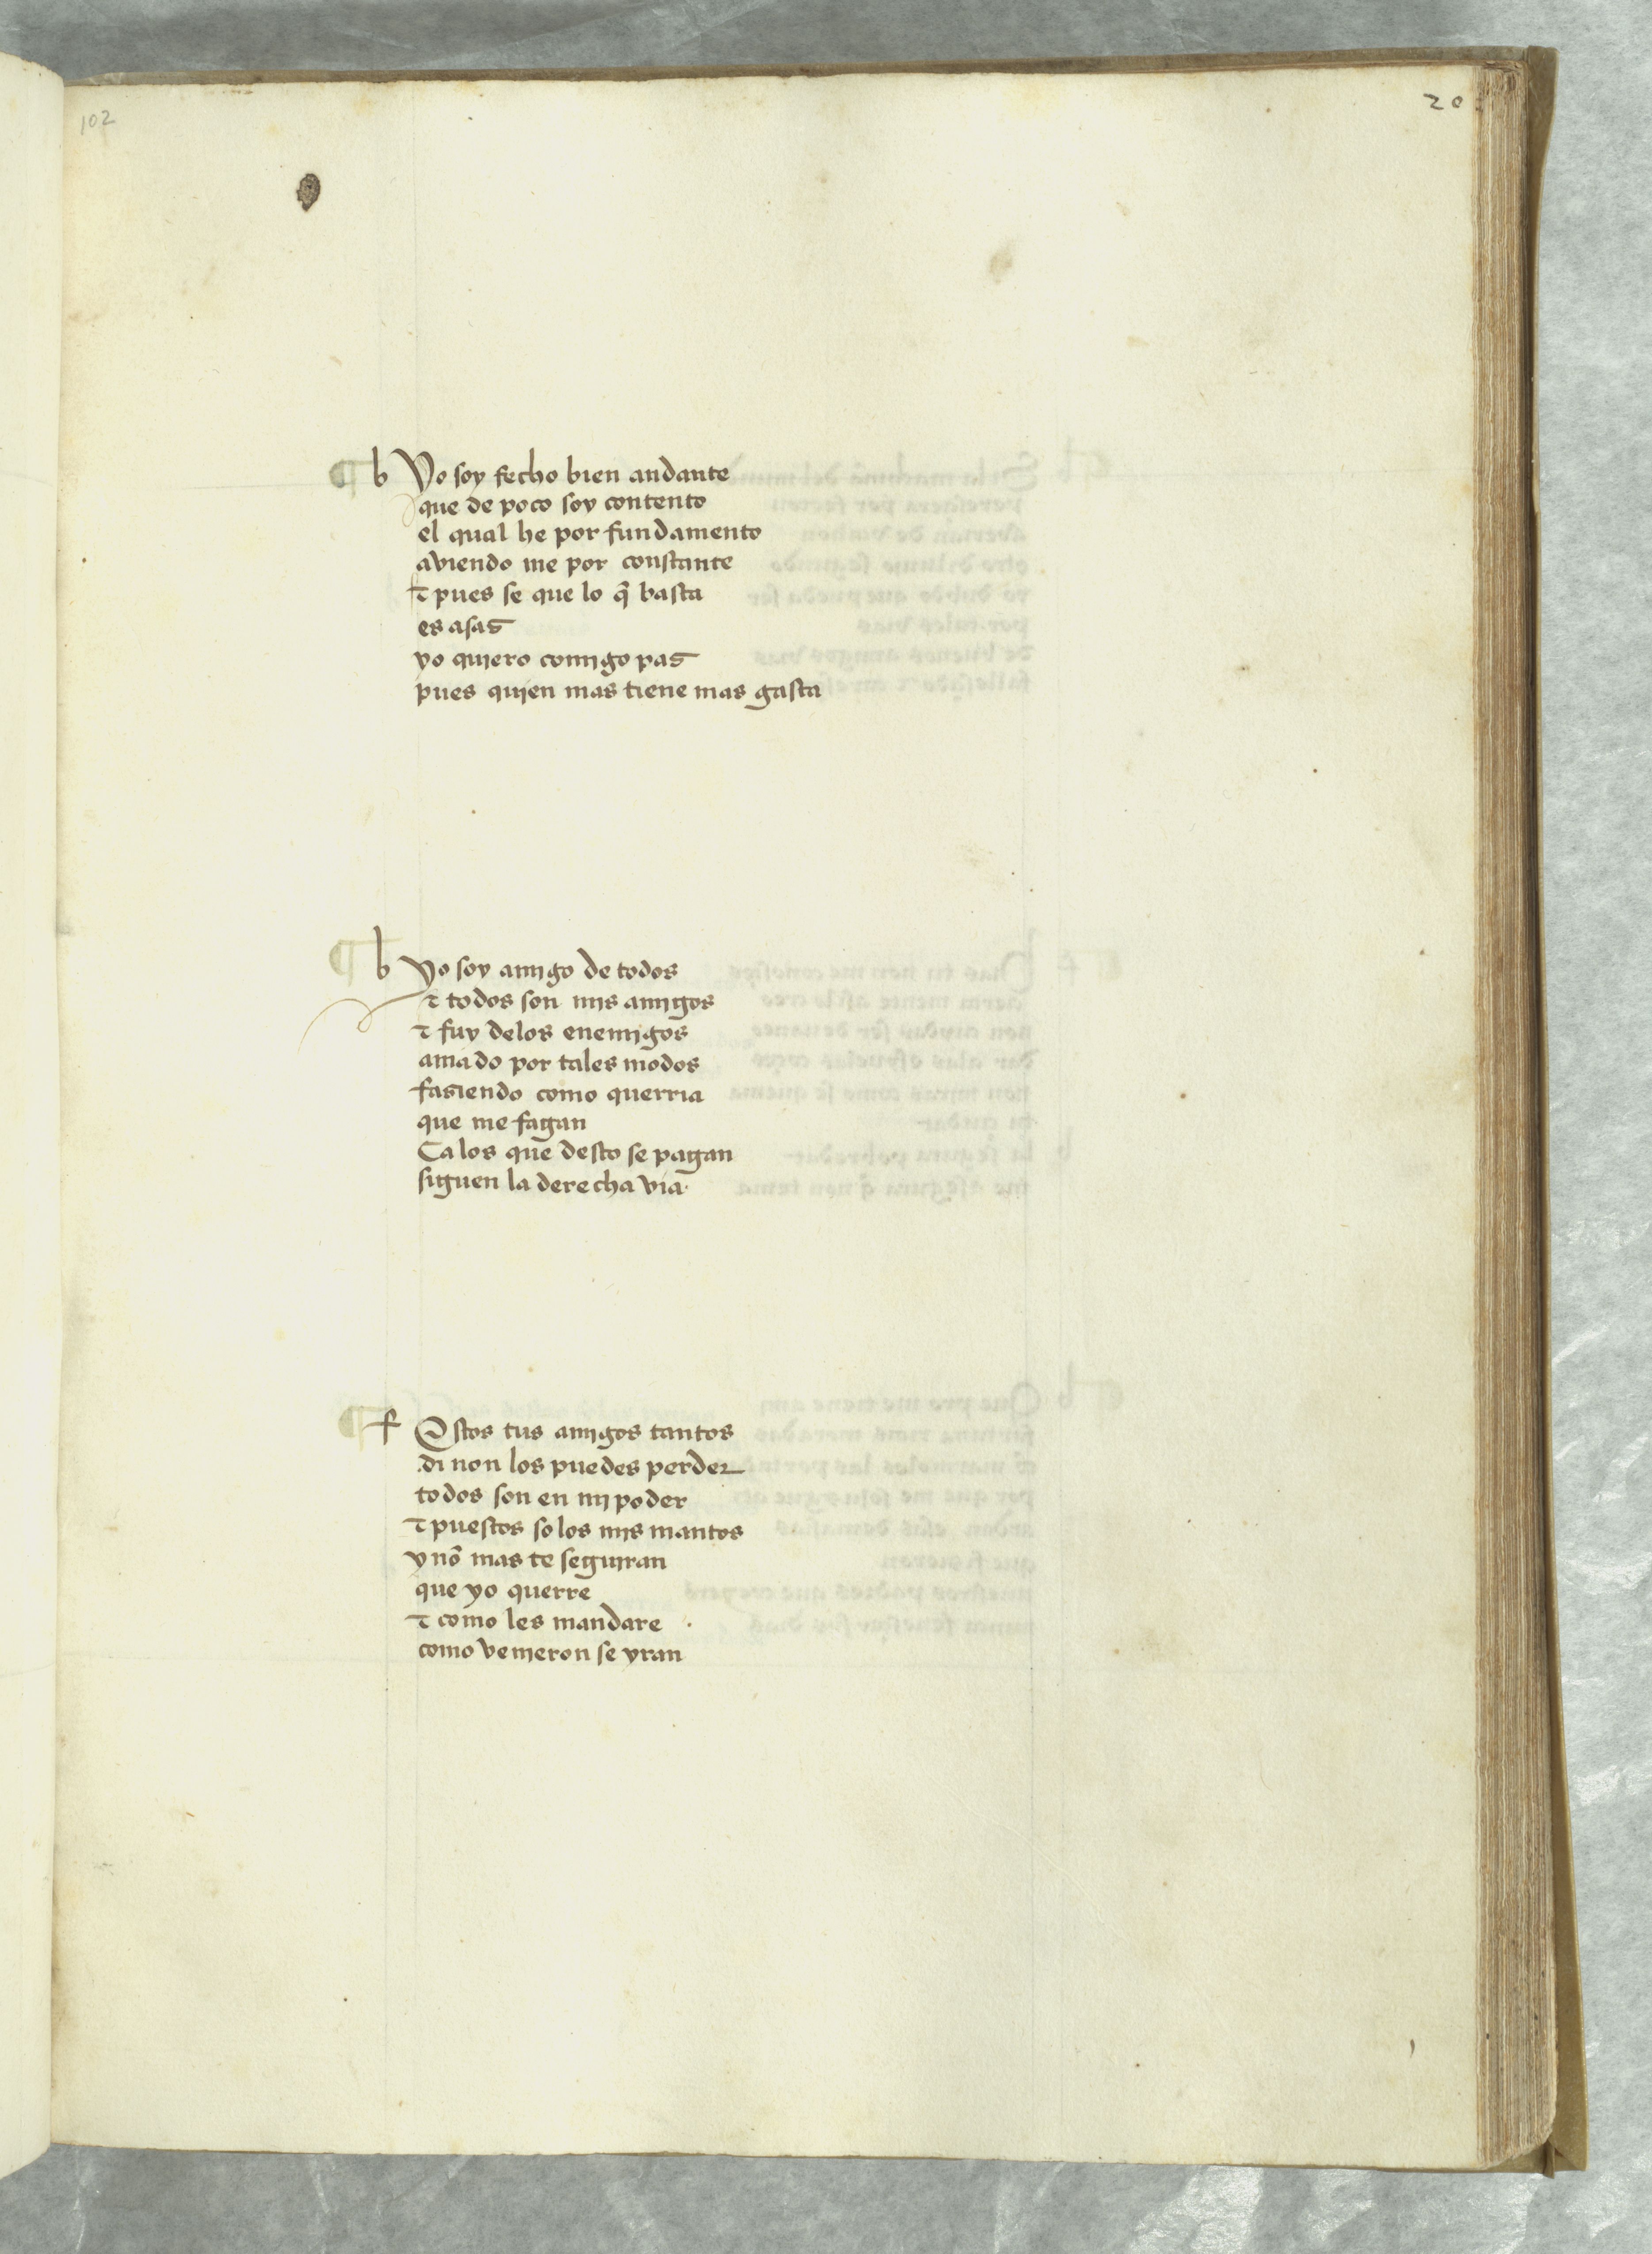 102
20
¶ b Yo soy fecho bien andante
que de poco soy contento
el qual he por fundamento
aviendo me por constante
⁊ pues se que lo q̃ basta
es asas
yo quiero comigo pas
pues quien mas tiene mas gasta
¶ b Yo soy amigo de todos
⁊ todos son mis amigos
⁊ fuy delos enemigos
amado por tales modos
fasiendo como querria
que me fagan
Ca los que desto se pagan
siguen la derecha via
¶ f Estos tus amigos tantos
di non los puedes perder
todos son en mi poder
⁊ puestos so los mis mantos
y nõ mas te seguiran
que yo querre
⁊ como les mandare
como venieron se yran